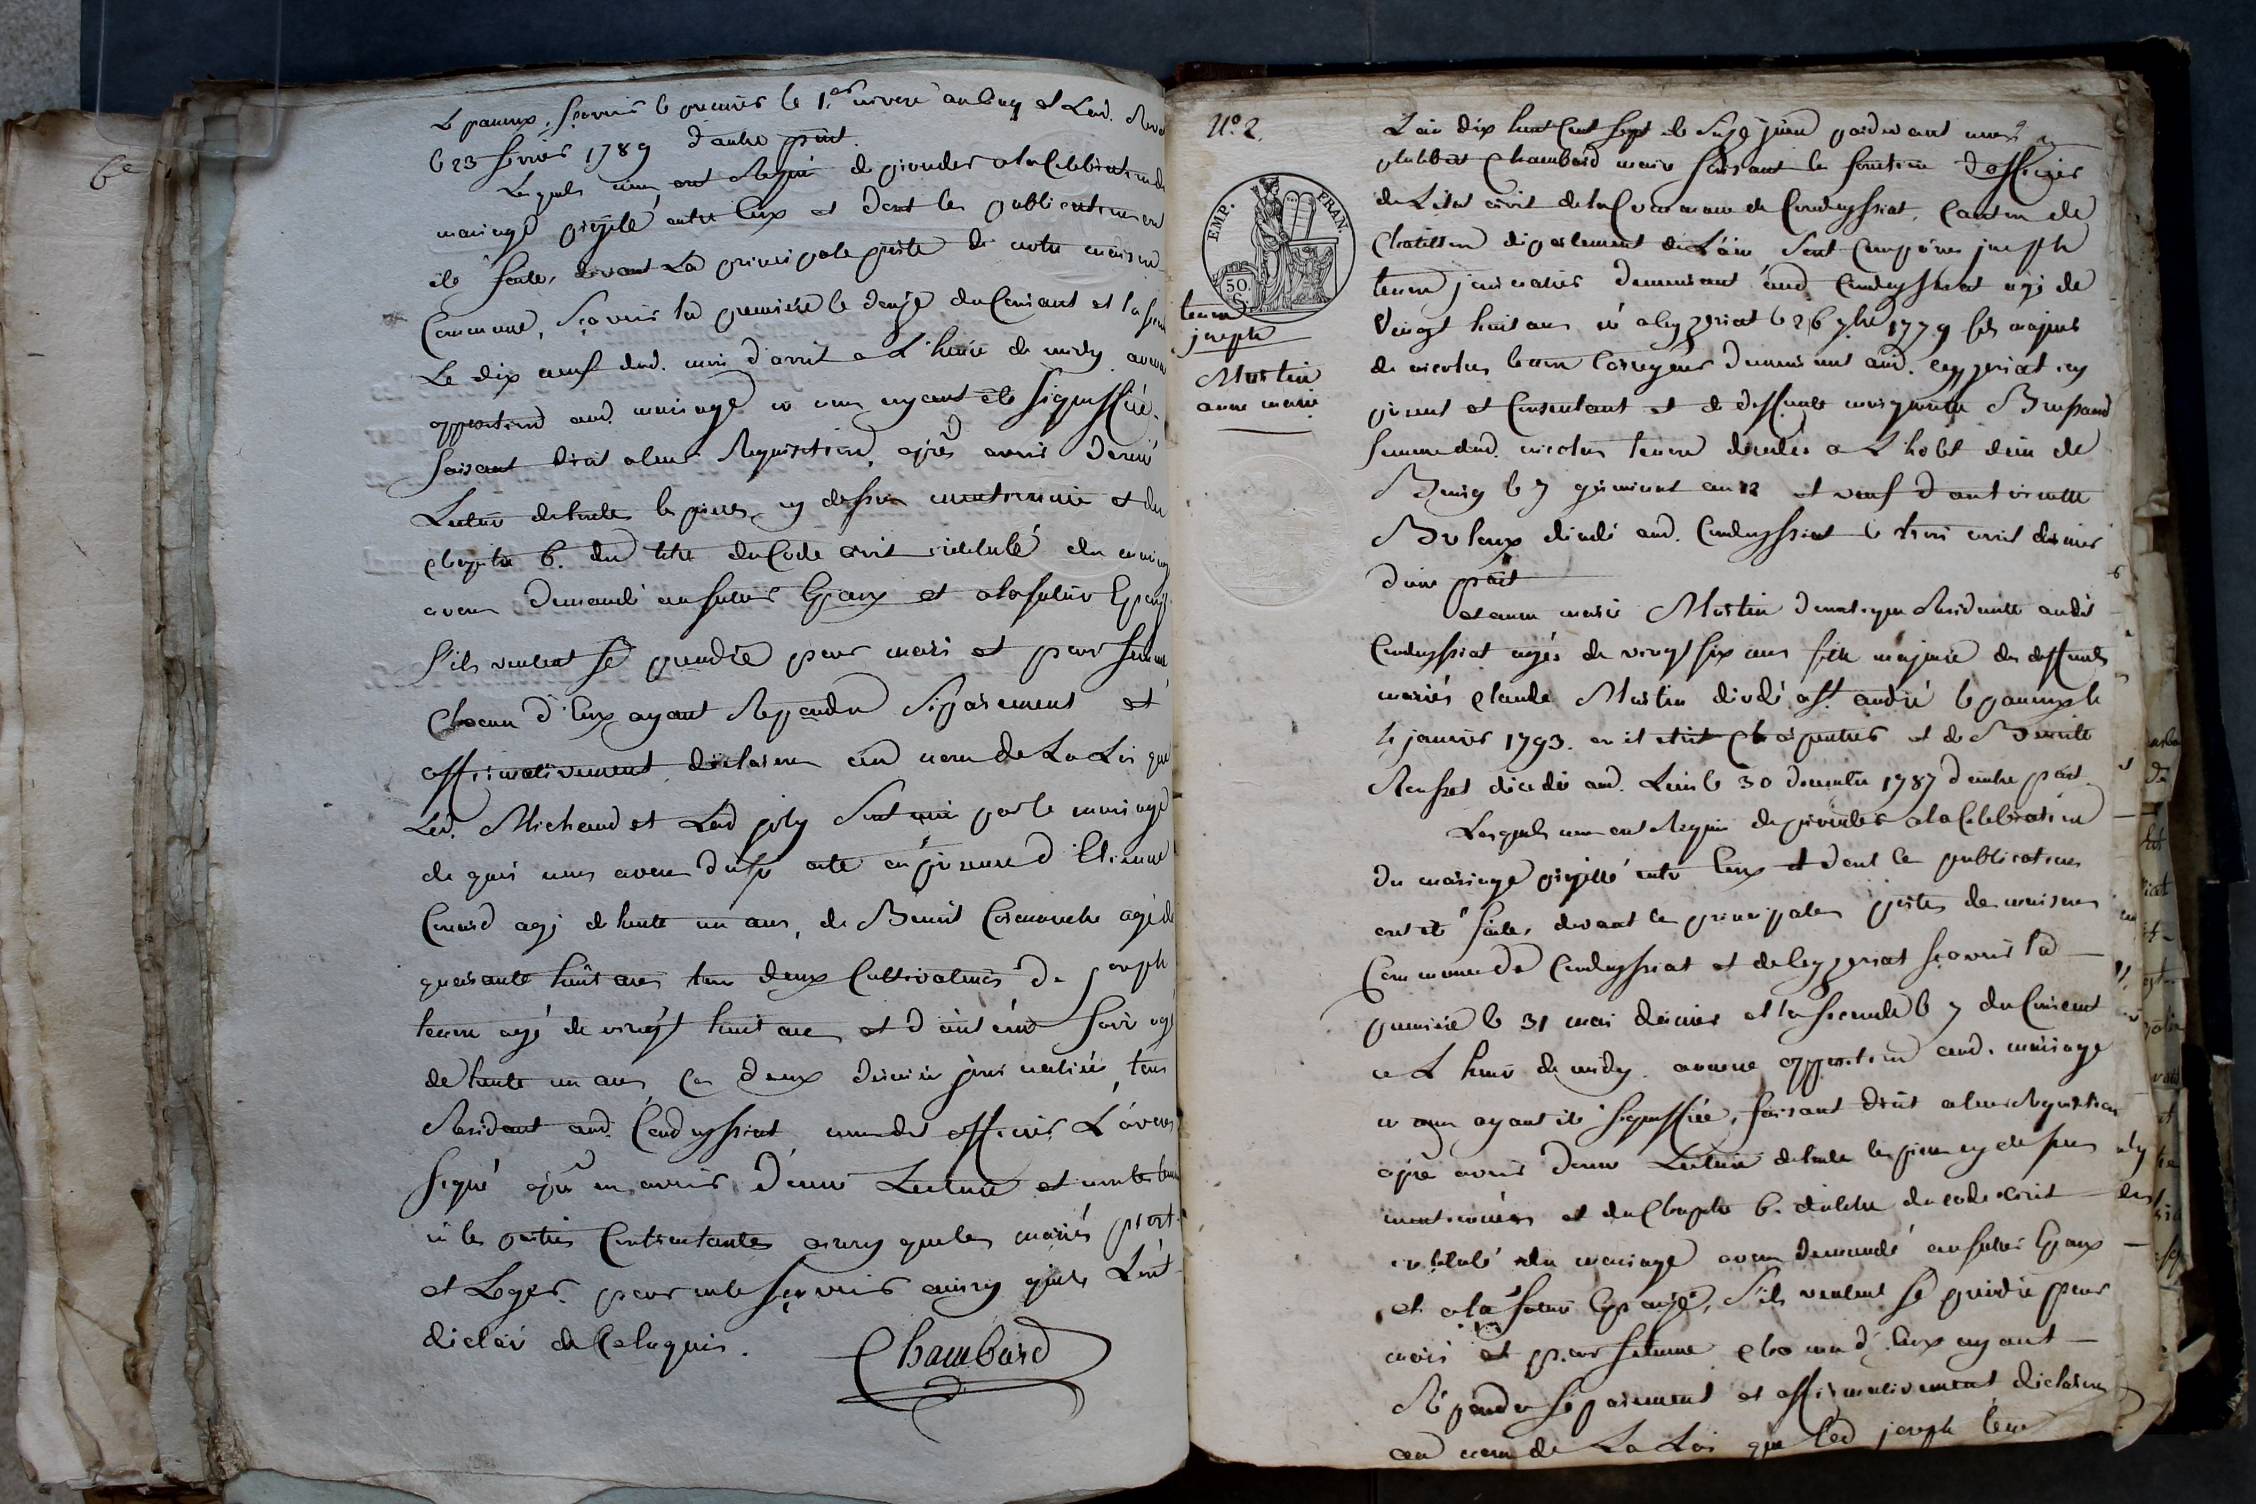 6e
Le panoux, sçavoir le premier le 1.er nivose an cinq et Lad.
le 23 février 1789 d'autre part.
Lesquels nous ont Requis de proceder a la Celebration du
mariage projetté entre Eux et dont les publications ont
été faites, devant La principale porte de notre maison
Commune, Sçavoir la premiere le douze du Courant et la
Le dix neuf dud. mois d'avril a L'heure de midy, aucune
opposition aud. mariage ne nous ayant été Signiffiée.
faisant droit a leur Requisition, après avoir donné
Lecture de toutes les pieces cy dessus mentionnée et du
chapitre 6. du titre du Code civil intitulé du mariage
avons demandé au futur Epoux et a la future Epouse
S'ils veulent Se prendre pour mari et pour femme,
Chacun d'Eux ayant Repondu Séparement et
affirmativement, déclarons au nom de La Loi que
Led. Michaud et Lad joly Sont unis par le mariage
de quoi nous avons dressé acte en présence d'Etienne
agé de trente un ans, de Benoit agé de
quarante huit ans tous deux Cultivateurs de joseph
teurre agé de vingt huit ans et d'antoine agé
de trente un ans, Ces deux derniers journaliers, tous
Résidant aud. Condeyssiat, nous dit officier L'avons
Signé après en avoir donné Lecture et non les temoins
ni les parties Contractantes ainsy que les mariés
et Loger pour ne le Sçavoir ainsy qu'ils L'ont
déclaré de Ce Enquis.
Chambard
N.o 2.
EMP. FRAN.
50. C.
teurre
joseph
Martin
anne marie
L'an dix huit Cent Sept le Seize juin pardevant nous
philibert Chambard maire faisant les fonction d'officier
de L'etat civil de la Commune de Condeyssiat, Canton de
Chatillon département de L'ain Sont Comparus joseph
teurre journalier demeurant aud Condeyssiat agé de
Vingt huit ans né a leyzeriat le 26 7bre 1779 fils majeur
de nicolas teurre demeurant aud. leyzeriat icy
présent et Consentant et de deffunte marguerite
femme dud. nicolas teurre décédée a L'hotel dieu de
Bourg le 7 germinal an 12 et veuf d'antoinette
décédé aud. Condeyssiat le trois avril dernier
d'une part
et anne marie Martin domestique Résidante audit
Condeyssiat agée de vingt six ans fille majeure des deffunts
mariés claude Martin décédé a St. andré le panoux le
4 janvier 1793. et de Benoite
décédée aud. Lieu le 30 décembre 1787 d'autre part
Lesquels nous ont Requis de proceder a la Celebration
du mariage projetté entre Eux et dont les publications
ont été faites, devant les principales portes des maisons
Commune de Condeyssiat et de leyzeriat sçavoir la
premiere le 31 mai dernier et la seconde le 7 du Courent
a L'heure de midy. aucune opposition aud. mariage
ne nous ayant été Signiffiée, faisant droit a leur Requisition
après avoir donné Lecture de toutes les pieces cy dessus
mentionnées et du Chapitre 6. du titre du code civil
intitulé du mariage avons demandé au futur Epoux
et a la future Epouse, S'ils veulent Se prendre pour
mari et pour femme chacun d'Eux ayant
Répondu Séparement et affirmativement déclarons
au nom de La Loi que Led joseph teurre